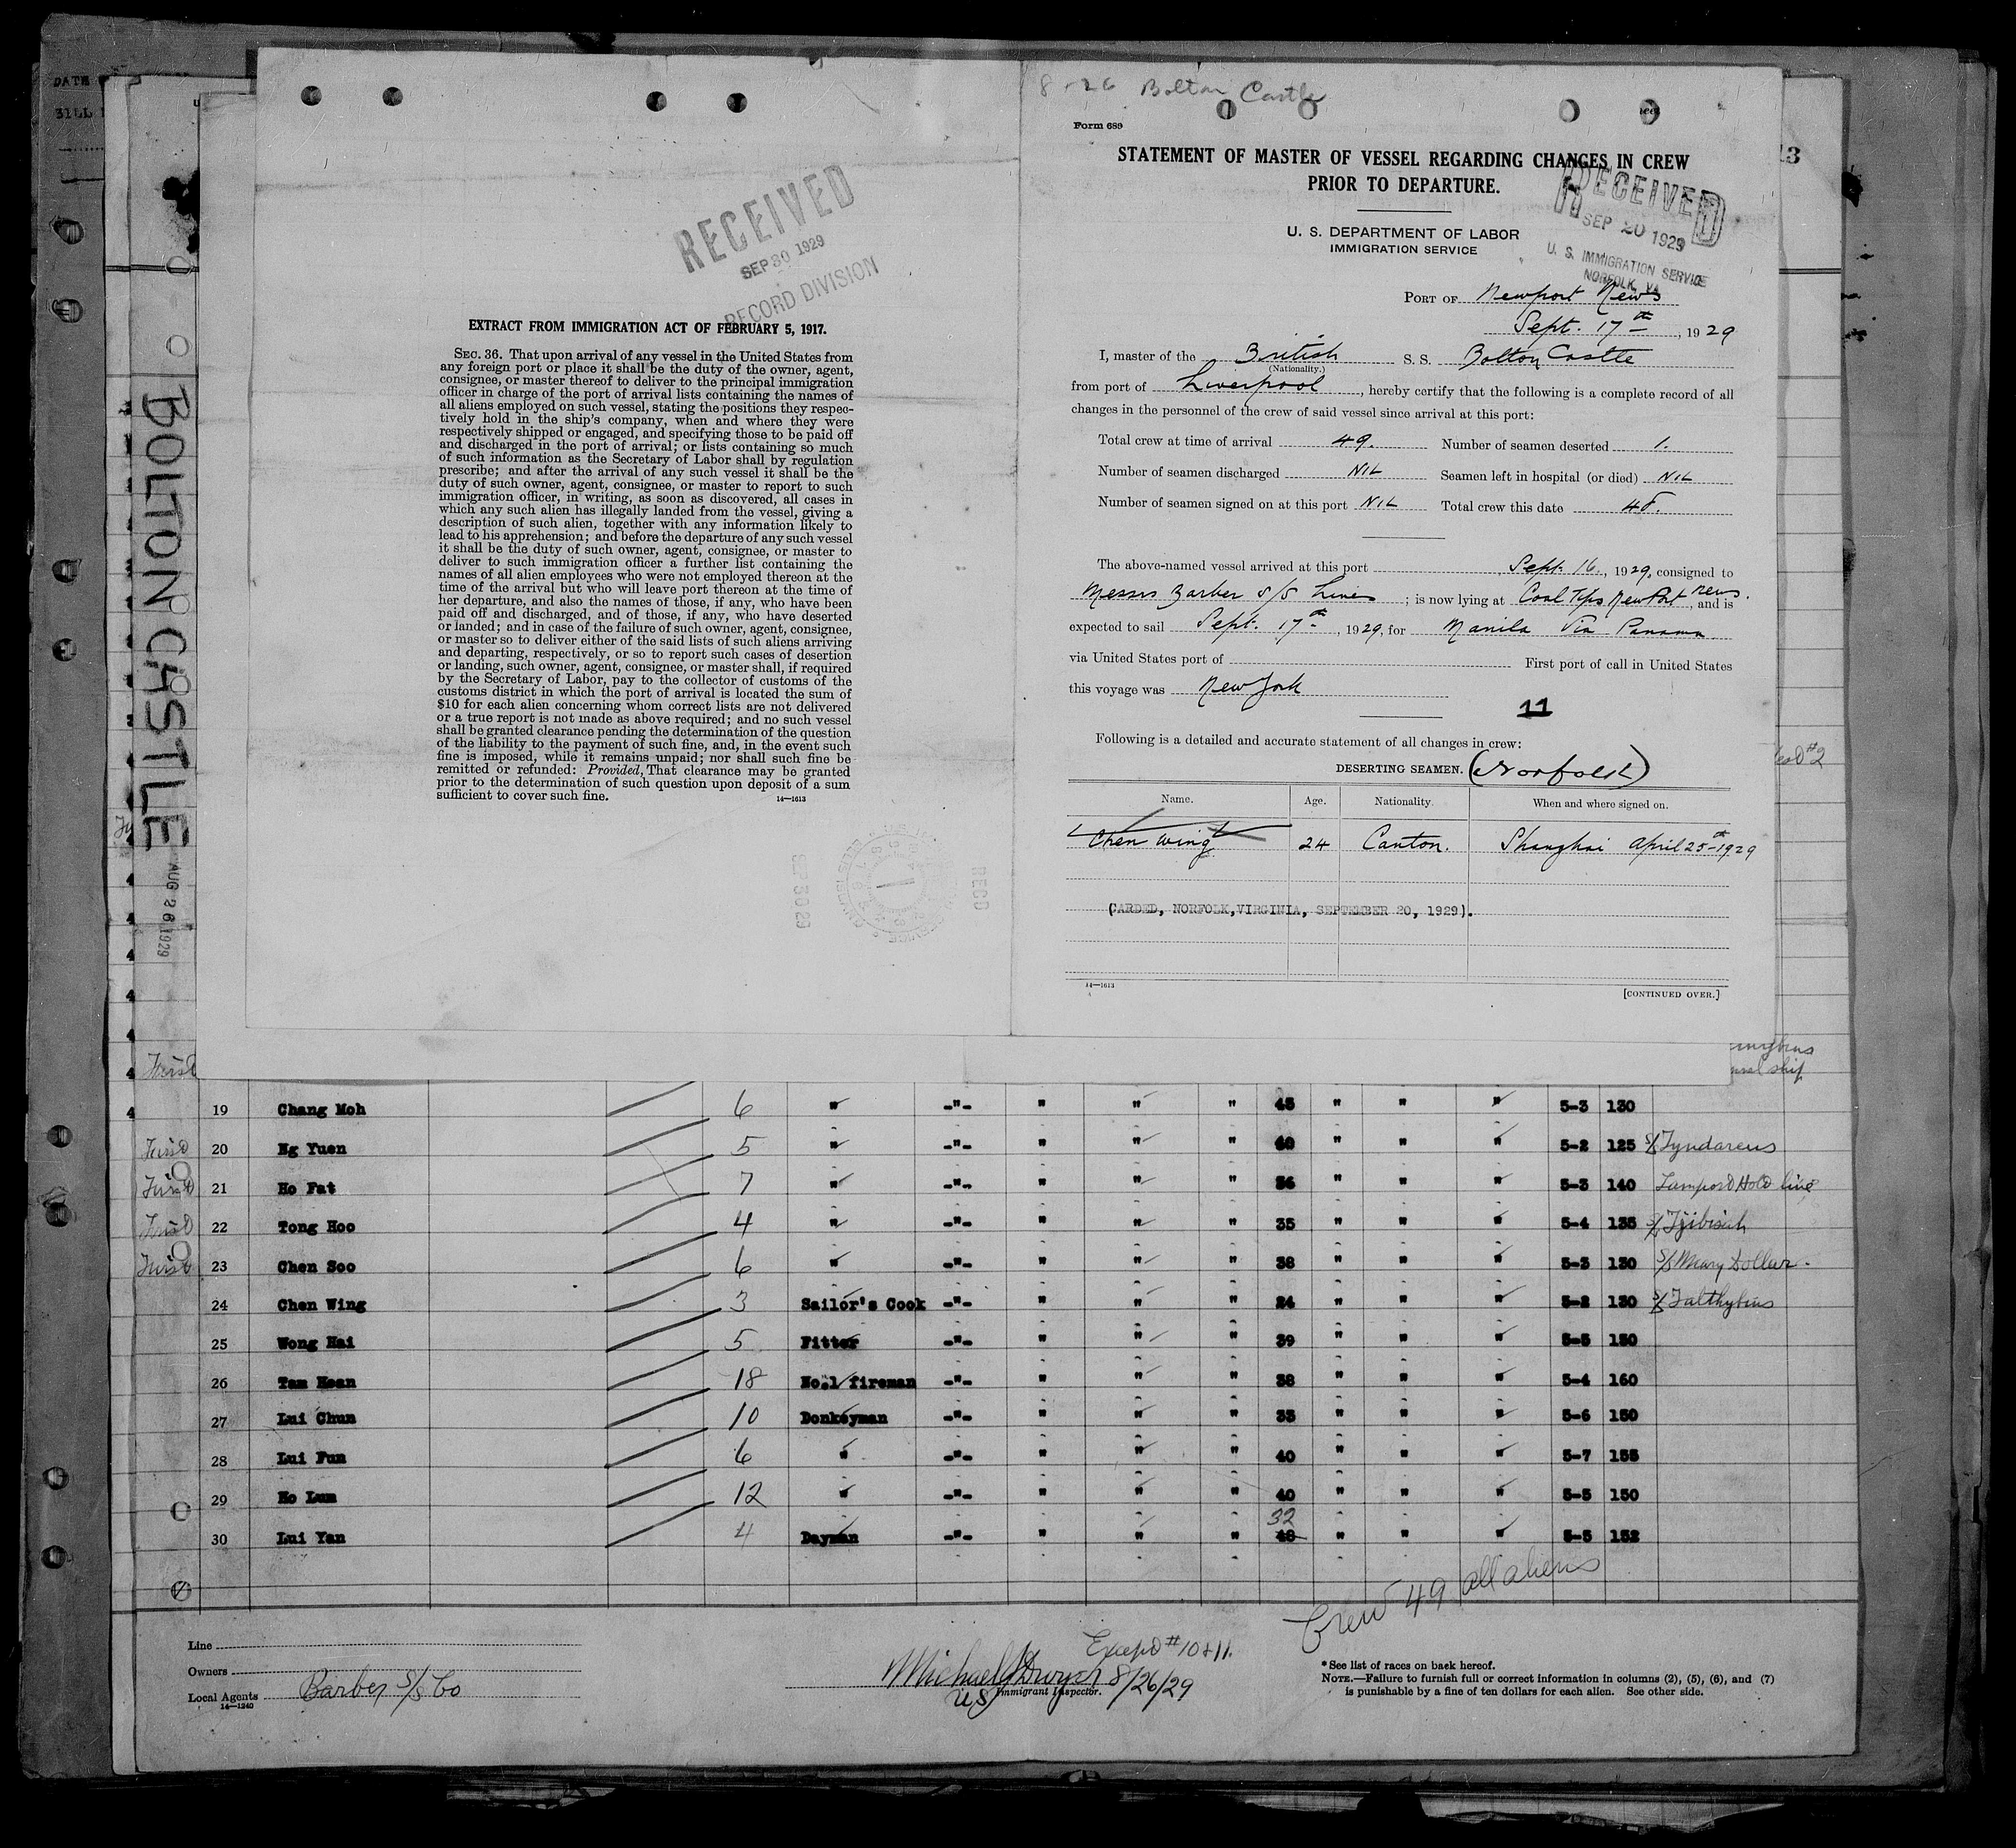 DATE
BILL
BOLTON CASTLE
AUG 26 1929
RECEIVED
SEP 30 1929
RECORD DIVISION
EXTRACT FROM IMMIGRATION ACT OF FEBRUARY 5, 1917.
SEC. 36. That upon arrival of any vessel in the United States from
any foreign port or place it shall be the duty of the owner, agent,
consignee, or master thereof to deliver to the principal immigration
officer in charge of the port of arrival lists containing the names of
all aliens employed on such vessel, stating the positions they respec-
tively hold in the ship's company, when and where they were
respectively shipped or engaged, and specifying those to be paid off
and discharged in the port of arrival; or lists containing so much
of such information as the Secretary of Labor shall by regulation
prescribe; and after the arrival of any such vessel it shall be the
duty of such owner, agent, consignee, or master to report to such
immigration officer, in writing, as soon as discovered, all cases in
which any such alien has illegally landed from the vessel, giving a
description of such alien, together with any information likely to
lead to his apprehension; and before the departure of any such vessel
it shall be the duty of such owner, agent, consignee, or master to
deliver to such immigration officer a further list containing the
names of all alien employees who were not employed thereon at the
time of the arrival but who will leave port thereon at the time of
her departure, and also the names of those, if any, who have been
paid off and discharged, and of those, if any, who have deserted
or landed; and in case of the failure of such owner, agent, consignee,
or master so to deliver either of the said lists of such aliens arriving
and departing, respectively, or so to report such cases of desertion
or landing, such owner, agent, consignee, or master shall, if required
by the Secretary of Labor, pay to the collector of customs of the
customs district in which the port of arrival is located the sum of
$10 for each alien concerning whom correct lists are not delivered
or a true report is not made as above required; and no such vessel
shall be granted clearance pending the determination of the question
of the liability to the payment of such fine, and, in the event such
fine is imposed, while it remains unpaid; nor shall such fine be
remitted or refunded: Provided, That clearance may be granted
prior to the determination of such question upon deposit of a sum
sufficient to cover such fine.
14—1613
8-26 Bolton Castle
Form 689
STATEMENT OF MASTER OF VESSEL REGARDING CHANGES IN CREW
PRIOR TO DEPARTURE.
U. S. DEPARTMENT OF LABOR
IMMIGRATION SERVICE
RECEIVED
SEP 20 1929
U. S. IMMIGRATION SERVICE
NORFOLK, VA
PORT OF Newport News
Sept. 17th, 1929
I, master of the British S. S. Bolton Castle
(Nationality.)
from port of Liverpool, hereby certify that the following is a complete record of all
changes in the personnel of the crew of said vessel since arrival at this port:
Total crew at time of arrival 49. Number of seamen deserted 1.
Number of seamen discharged NIL Seamen left in hospital (or died) NIL
Number of seamen signed on at this port NIL Total crew this date 48.
The above-named vessel arrived at this port Sept. 16, 1929, consigned to
Messrs Barber S/S Lines; is now lying at Coal Tips NewPort news, and is
expected to sail Sept. 17th, 1929, for Manila Via Panama
via United States port of First port of call in United States
this voyage was New York
11
Following is a detailed and accurate statement of all changes in crew:
DESERTING SEAMEN. (Norfolk)
Name. Age. Nationality. When and where signed on.
Chen Wing 24 Canton. Shanghai April 25th-1929
(CARDED, NORFOLK, VIRGINIA, SEPTEMBER 20, 1929).
14—1613
[CONTINUED OVER.]
19 Chang Moh 6 " -"- " " " 45 " " " 5-3 130
20 Ng Yuen 5 " -"- " " " 40 " " " 5-2 125 S/S Tyndareus
21 Ho Fat 7 " -"- " " " 36 " " " 5-3 140 Lamport Hold line
22 Tong Hoo 4 " -"- " " " 35 " " " 5-4 135
23 Chen Soo 6 " -"- " " " 38 " " " 5-3 130 S/S Mary Dollar.
24 Chen Wing 3 Sailor's Cook -"- " " " 24 " " " 5-2 130 S/S Talthybius
25 Wong Hai 5 Fitter -"- " " " 39 " " " 5-5 150
26 Tam Kean 18 No.1 fireman -"- " " " 38 " " " 5-4 160
27 Lui Chun 10 Donkeyman -"- " " " 33 " " " 5-6 150
28 Lui Fun 6 " -"- " " " 40 " " " 5-7 155
29 Ho Lum 12 " -"- " " " 40 " " " 5-5 150
32
30 Lui Yan 4 Dayman -"- " " " 48 " " " 5-5 152
Crew 49 all aliens
Except #10+11.
Line
Owners
Local Agents Barber S/S Co
14—1240
8/26/29
US Immigrant Inspector.
* See list of races on back hereof.
NOTE.—Failure to furnish full or correct information in columns (2), (5), (6), and (7)
is punishable by a fine of ten dollars for each alien. See other side.